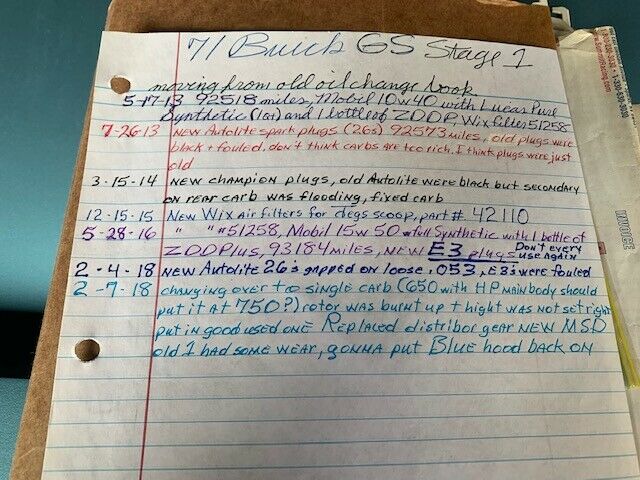 71 Buick GS Stage 1
moving from old oil change book
5-17-13 92518 miles, Mobil 10w40 with Lucas Pure
Synthetic (1qt) and 1 bottle of ZDDP, Wix filter 51258
7-26-13 NEW Autolite spark plugs (26s) 92573 miles, old plugs were
black + fouled. don't think carbs are too rich. I think plugs were just
old
3-15-14 NEW champion plugs, old Autolite were black but secondary
on rear carb was flooding, fixed carb
12-15-15 New Wix air filters for degs scoop, part # 42110
5-28-16 " " #51258, Mobil 15w50 full Synthetic with 1 bottle of
ZDDPlus, 93184 miles, NEW E3 plugs Don't every
use again
2-4-18 NEW Autolite 26's gapped on loose .053, E3's were fouled
2-7-18 changing over to single carb (650 with HP mainbody should
put it at 750?) rotor was burnt up thight was not set right
put in good used one Replaced distribor gear NEW MSD
old 1 had some wear, gonna put Blue hood back on
INVOICE